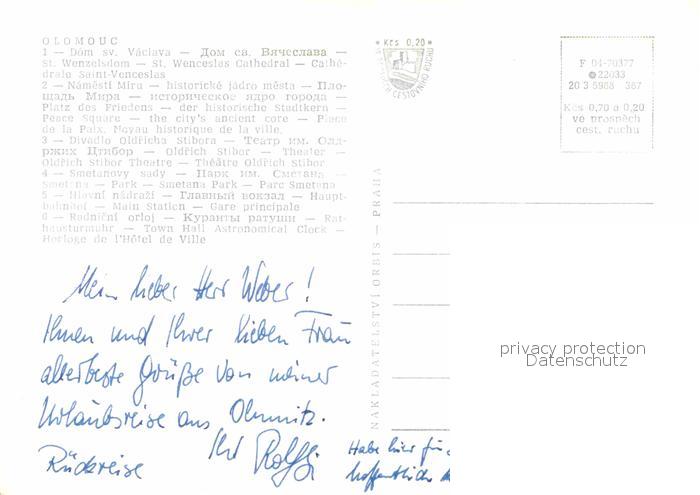 OLOMOUC
1 — Dóm sv. Václava — Дом св. Вячеслава —
St. Wenzelsdom — St. Wenceslas Cathedral — Cathé-
drale Saint-Venceslas
2 — Náměstí Míru — historické jádro města — Пло-
щадь Мира — историческое ядро города —
Platz des Friedens — der historische Stadtkern —
Peace Square — the city's ancient core — Place
de la Paix. Noyau historique de la ville.
3 — Divadlo Oldřicha Stibora — Театр им. Олд-
ржих Цтибор — Oldřich Stibor — Theater —
Oldřich Stibor Theatre — Théâtre Oldřich Stibor
4 — Smetanovy sady — Парк им. Сметана —
Smetana — Park — Smetana Park — Parc Smetana
5 — Hlavní nádraží — Главный вокзал — Haupt-
bahnhof — Main Station — Gare principale
6 — Radniční orloj — Куранты ратуши — Rat-
hausturmuhr — Town Hall Astronomical Clock —
Horloge de l'Hôtel de Ville
Kčs 0,20
CESTOVNÍHO RUCHU
F 04-70377
22033
20 3 5968 367
Kčs 0,70 a 0,20
ve prospěch
cest. ruchu
NAKLADATELSTVÍ ORBIS — PRAHA
privacy protection
Datenschutz
Mein lieber Herr Weber!
Ihnen und Ihrer lieben Frau
allerbeste Grüße von meiner
Urlaubsreise aus Olmütz.
Ihr
Rückreise
Habe hier für
hoffentlich